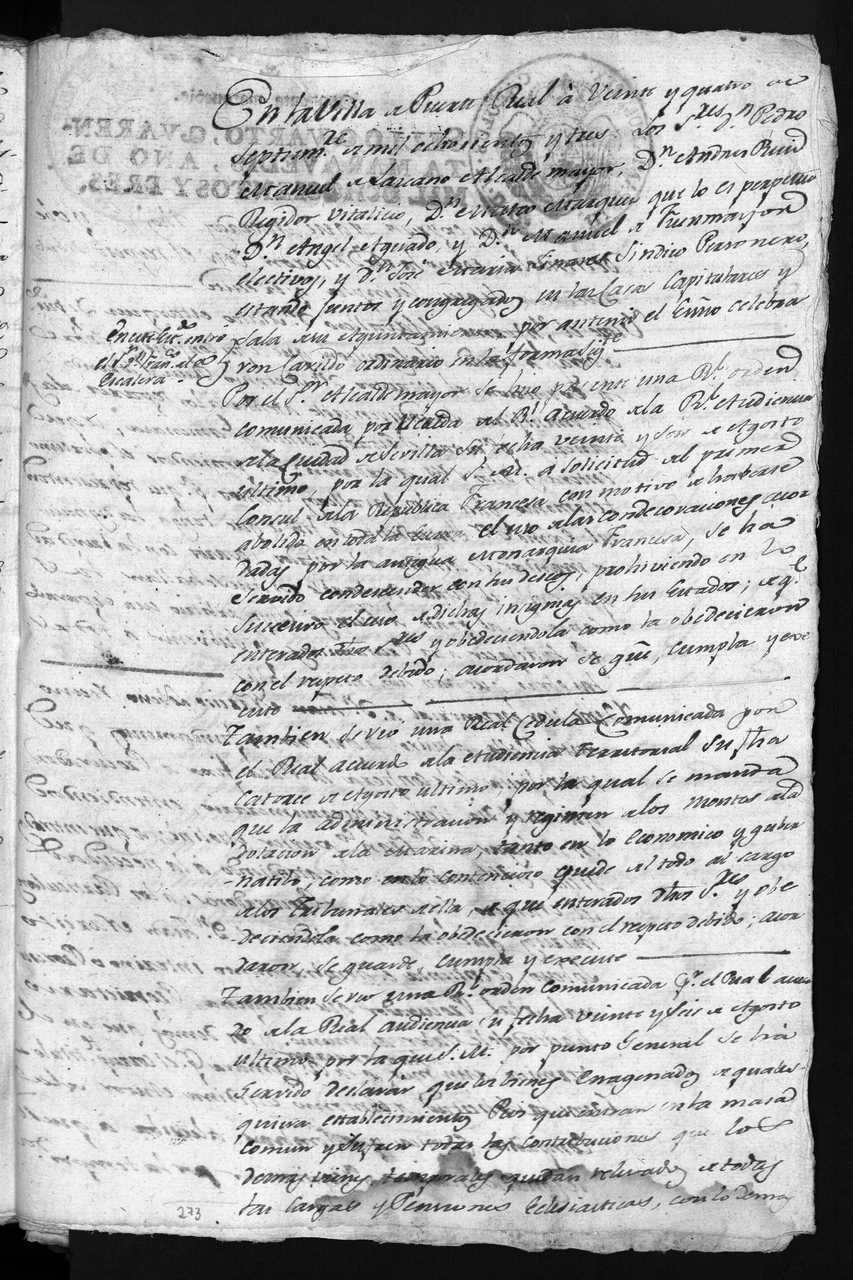 En la Villa de Puerto Real à Veinte y quatro de
Septiem.re de mil ochocientos y tres. Los S.res D.n Pedro
Manuel de Lazcano Alcalde mayor, D.n Andres Ruiz
Regidor vitalicio, D.n Marcos Marquez que lo es perpetuo
D.n Angel Aguado, y D.n Manuel de Fuenmayor
electivos, y D.n José Maria Linares Sindico Personero,
estando juntos y congregados en las Casas Capitulares y
Sala de su Ayuntamiento por ante mi el Essño celebra
ron Cavildo ordinario en la forma sig.te
En este Ex.o entró
el S.or D.n Fran.co de
Escalera
Por el S.or Alcalde mayor se hizo presente una R.l orden
comunicada por vereda del R.l Acuerdo de la R.l Audiencia
de la Ciudad de Sevilla su fecha veinte y seis de Agosto
ultimo, por la qual S. M. a solicitud del primer
Consul de la Republica Francesa con motivo de haberse
abolido en toda la el uso de las condecoraciones acor
dadas por la antigua Monarquia Francesa, se ha
servido condescender con sus deseos, prohiviendo en lo
succesivo el uso de dichas insignias en sus Estados; de q.e
enterados dhos S.res y obedeciendola como la obedecieron
con el respeto debido; acordaron se gũe, cumpla y exe
cute
Tambien se vió una Real Cedula Comunicada por
el Real acuerdo de la Audiencia Territorial su fha
Catorce de Agosto ultimo, por la qual se manda
que la administracion y regimen de los Montes de la
Dotacion de la Marina, tanto en lo economico y guber
nativo, como en lo contencioso quede del todo al cargo
de los Tribunales de ella, de que enterados dhos S.res y obe
deciendola como la obedecieron con el respeto debido; acor
daron, se guarde, cumpla y execute
Tambien se vio una R.l orden comunicada p.r el Real acuer
do de la Real audiencia su fecha veinte y seis de Agosto
ultimo por la que S. M. por punto General se há
servido declarar que los bienes enagenados de quales-
quiera establecimientos Pios que entran en la masa
comun y sufren todas las contribuciones que los
demas vienes temporales quedan relevados de todas
las Cargas y Pensiones Eclesiasticas, con lo demas
273